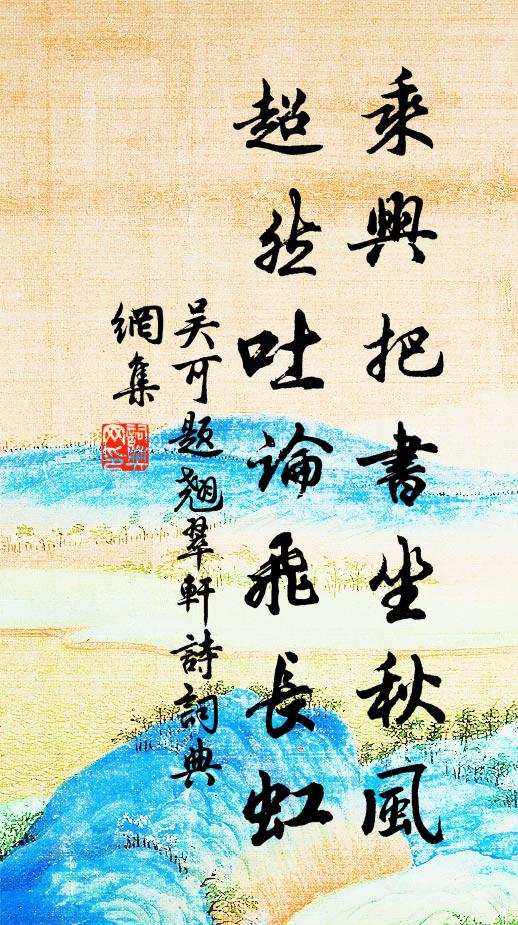 乘興把書坐秋風
超然吐論飛長虹
吳可題翹翠軒詩詞典
網集